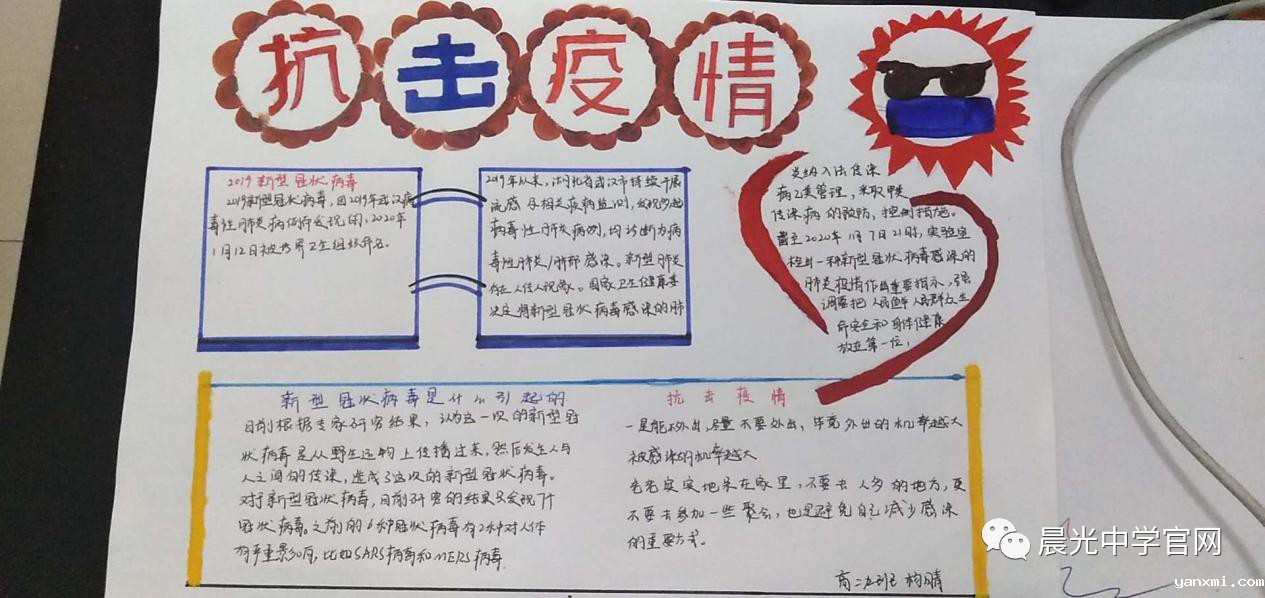 抗击疫情
2019新型冠状病毒
2019新型冠状病毒，因2019年武汉病
毒性肺炎病例而发现的，2020年
1月12日被世界卫生组织命名。
2019年以来，湖北省武汉市持续开展
流感及相关疾病监测，发现多起
病毒性肺炎病例，均诊断为病
毒性肺炎/肺部感染。新型肺炎
存在人传人现象。国家卫生健康委
决定将新型冠状病毒感染的肺
炎纳入法传染
病乙类管理，采取甲类
传染病的预防，控制措施。
截至2020年1月7日21时，实验室
检出一种新型冠状病毒感染的
肺炎疫情作出重要指示，强
调要把人民群众生
命安全和身体健康
放在第一位，
新型冠状病毒是什么引起的
目前根据专家研究结果，认为这一次的新型冠
状病毒是从野生动物上传播过来，然后发生人与
人之间的传染，造成了这次的新型冠状病毒。
对于新型冠状病毒，目前研究的结果只发现7种
冠状病毒。之前的6种冠状病毒有2种对人体
有严重影响，比如SARS病毒和MERS病毒
抗击疫情
一是能不外出，尽量不要外出，毕竟外出的机率越大
被感染的机率越大
老老实实地呆在家里，不要去人多的地方，更
不要去参加一些聚会，也是避免自己减少感染
的重要方式。
高二九班
晨光中学官网
yanxmi.com